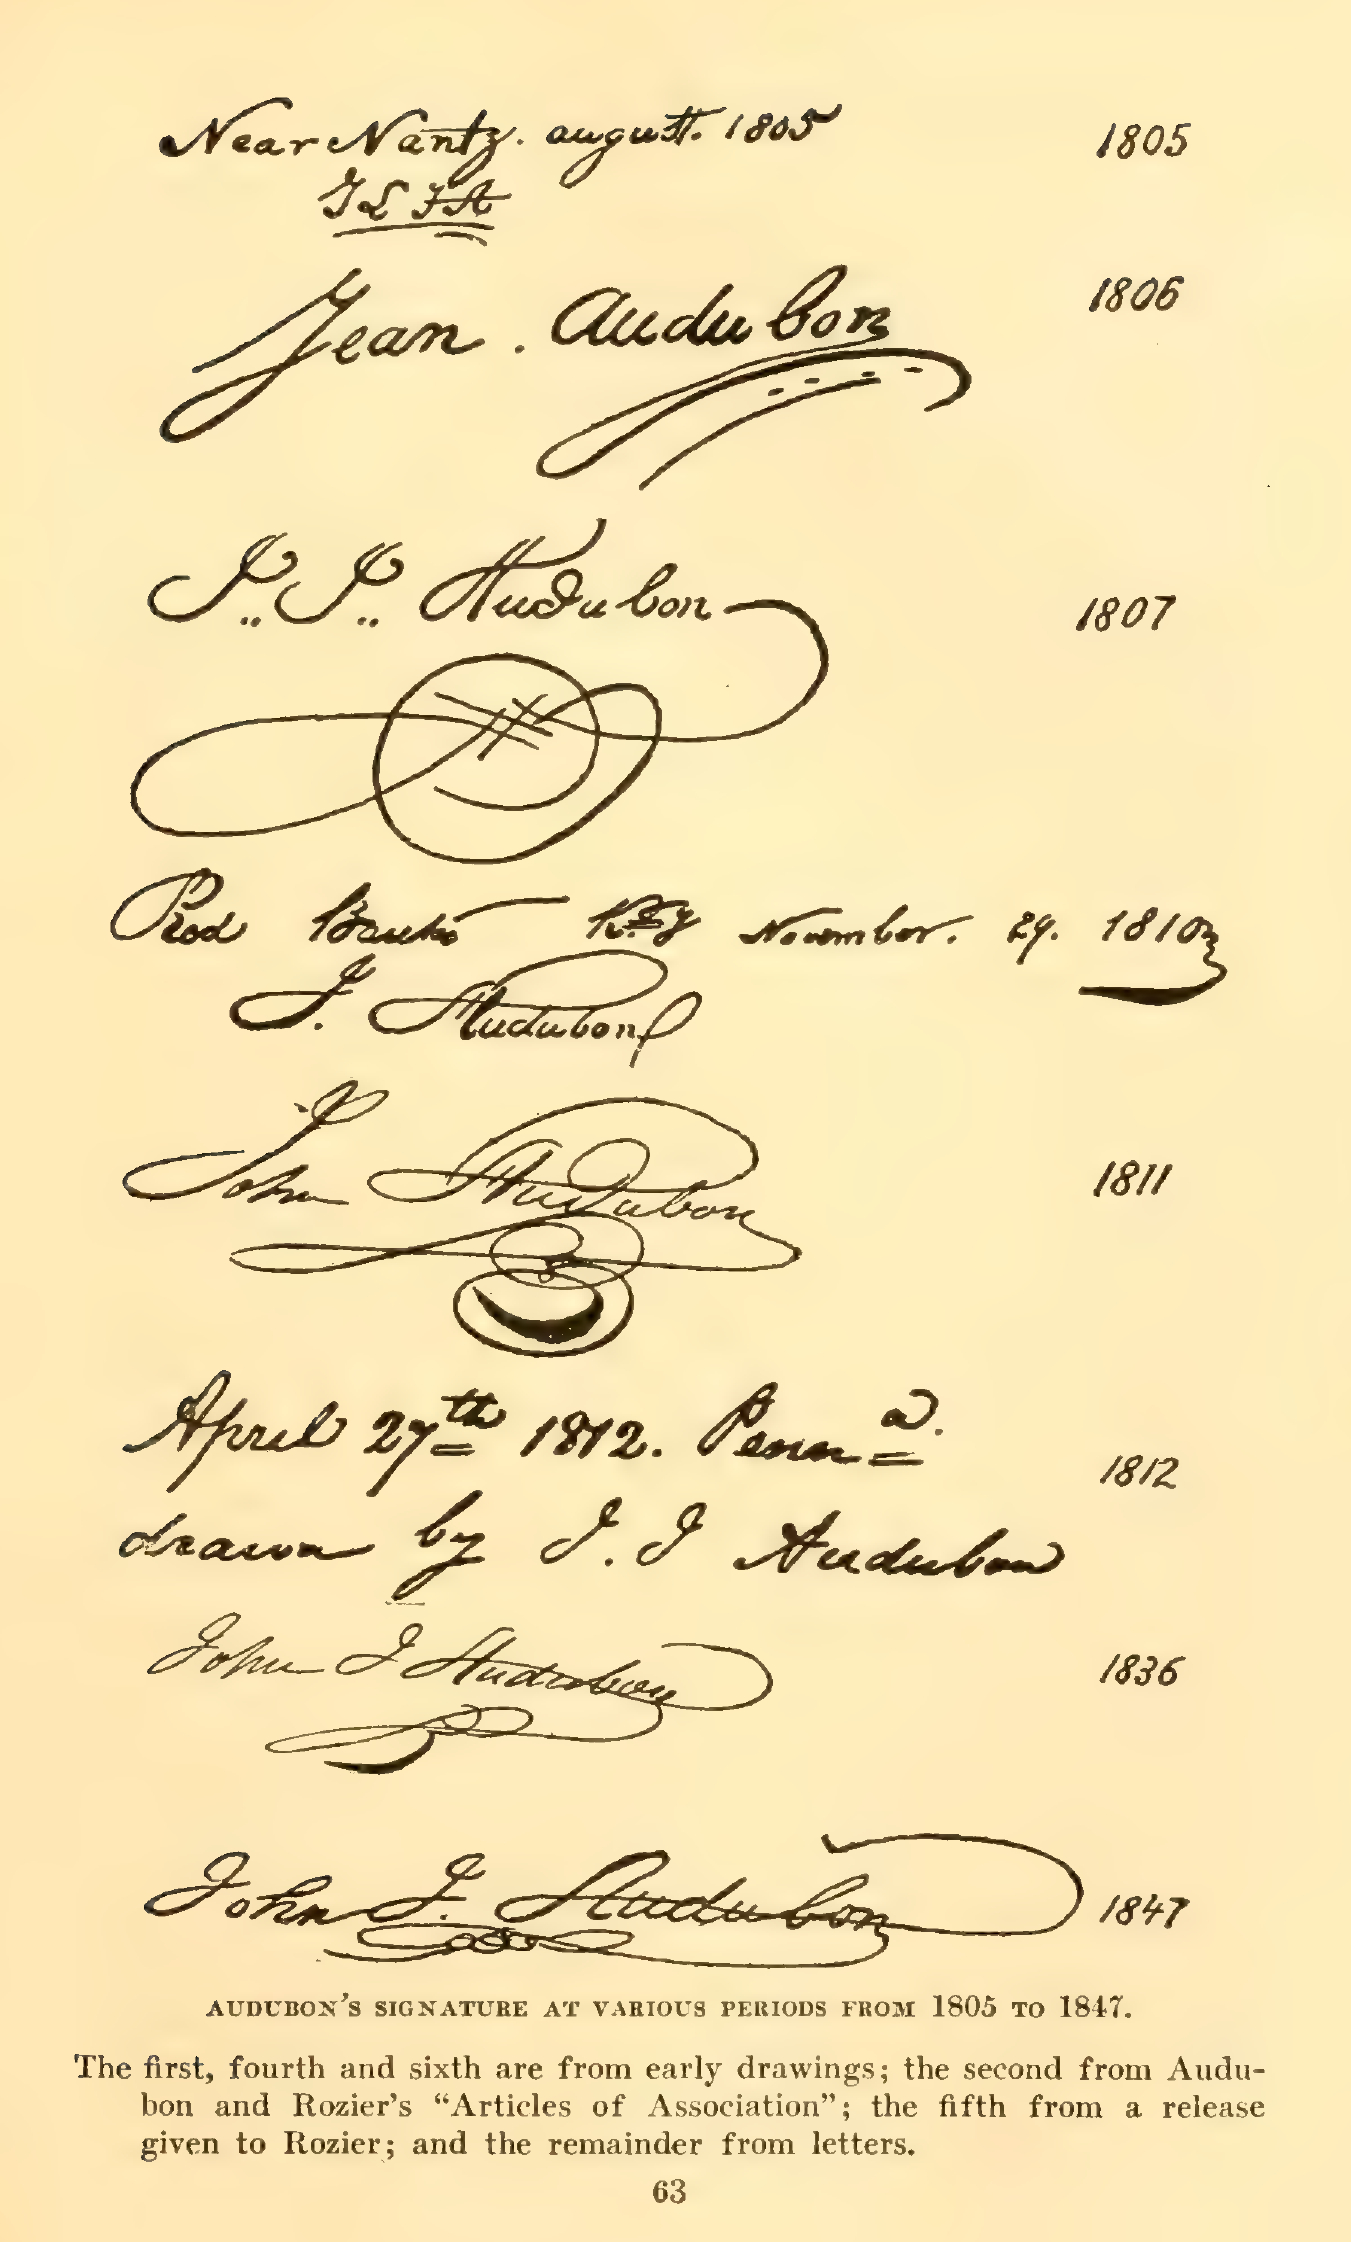 Near Nantz. august. 1805 1805
J L J A
Jean. Audubon 1806
J.. J.. Audubon 1807
Red Banks Kty November. 29. 1810
J. Audubon
John Audubon 1811
April 27th 1812. Penna.
1812
drawn by J. J Audubon
John J Audubon 1836
John J. Audubon 1847
AUDUBON'S SIGNATURE AT VARIOUS PERIODS FROM 1805 TO 1847.
The first, fourth and sixth are from early drawings; the second from Audu-
bon and Rozier's "Articles of Association"; the fifth from a release
given to Rozier; and the remainder from letters.
63